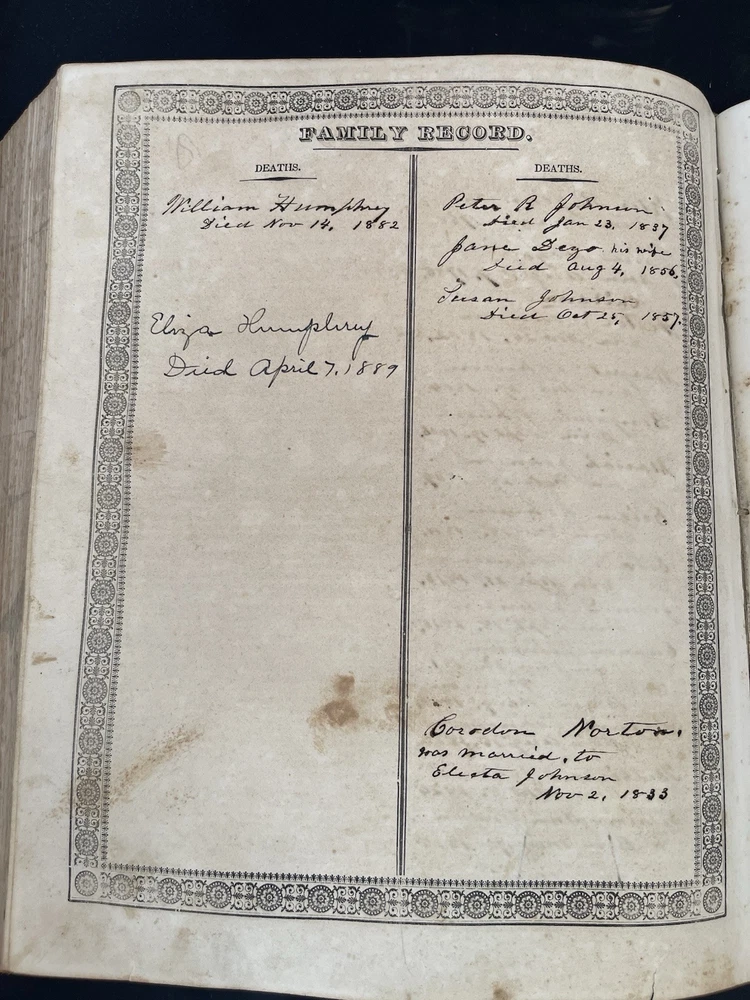 FAMILY RECORD.
DEATHS.
William Humphrey
Died Nov 14, 1882
Eliza Humphrey
Died April 7, 1889
DEATHS.
Peter R Johnson
Died Jan 23, 1837
Jane Deyo his wife
Died Aug 4, 1856,
Susan Johnson
Died Oct 25, 1857.
Corodon Norton.
was married, to
Electa Johnson
Nov 2, 1833